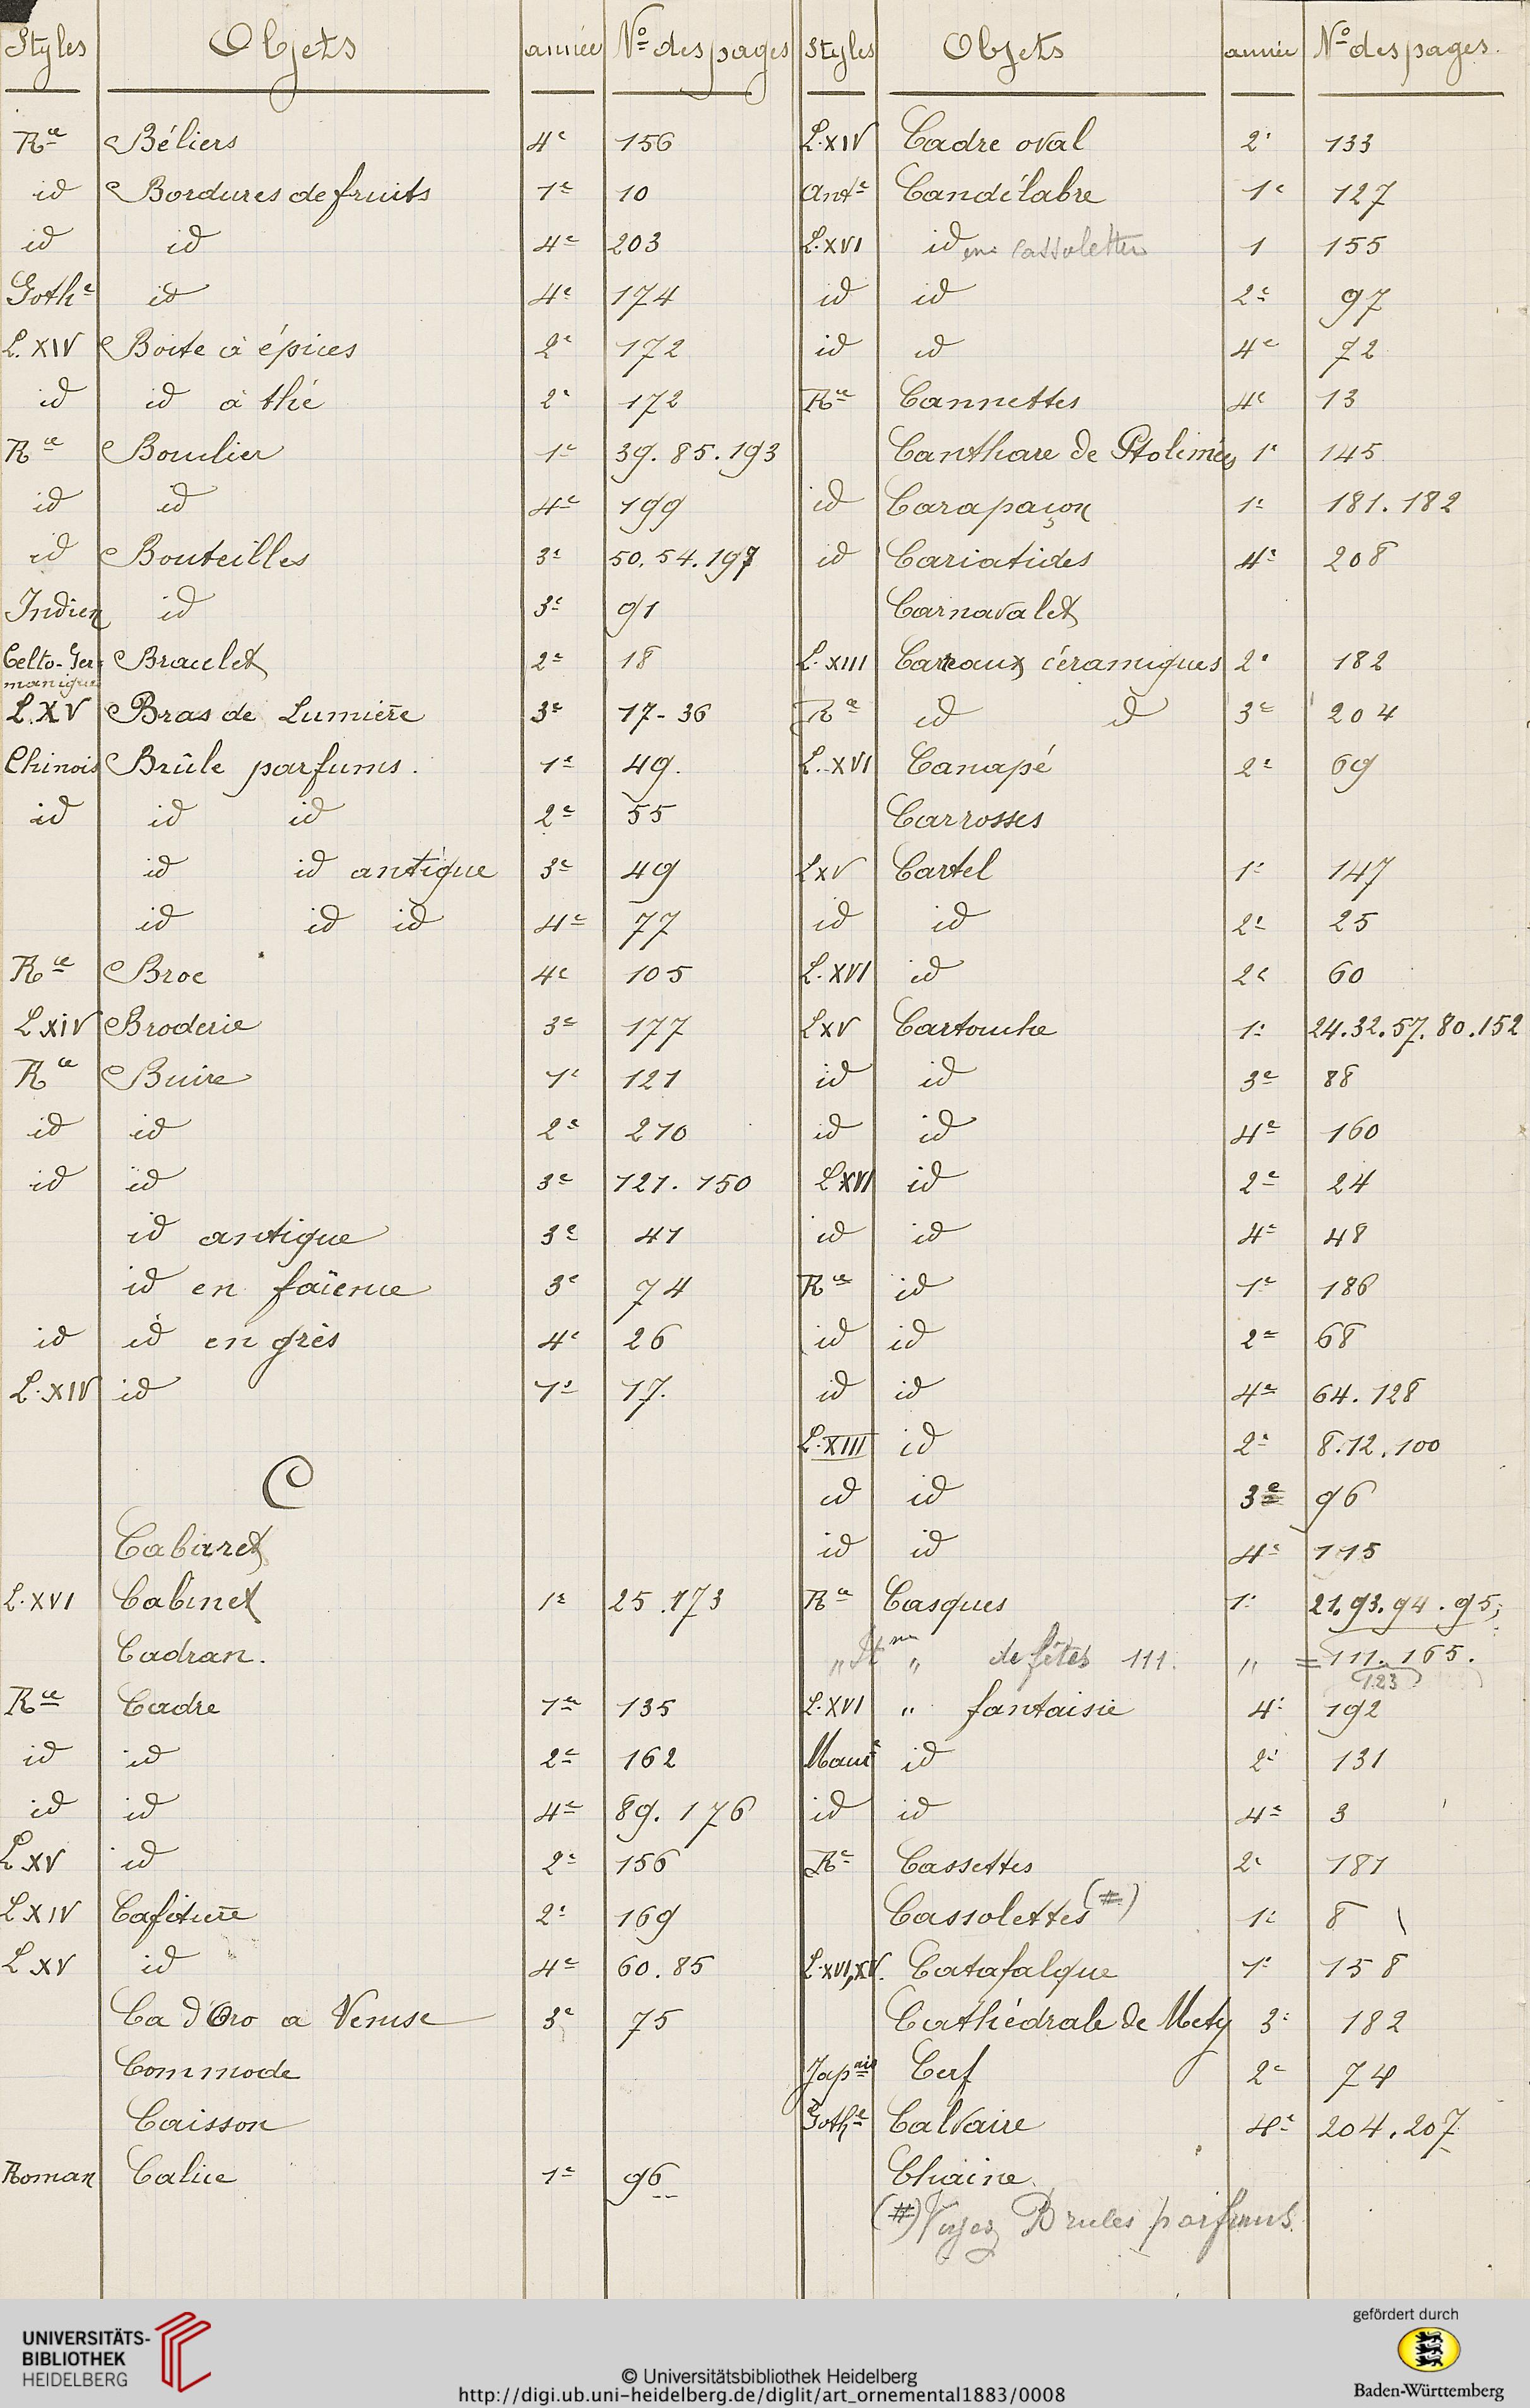 Styles Objets année Nº des pages
Rce Béliers 4e 156
id Bordures de fruits 1e 10
id id 4e 203
Gothe id 4e 174
L. XIV Boite à épices 2e 172
id id à thé 2e 172
Rce Bouclier 1e 39. 85. 193
id id 4e 199
id Bouteilles 3e 50. 54. 197
Indien id 3e 91
Celto-Ger- Bracelet 2e 18
manique
L. XV Bras de Lumière 3e 17-36
Chinois Brûle parfums. 1e 49.
id id id 2e 55
id id antique 3e 49
id id id 4e 77
Rce Broc 4e 105
L XIV Broderie 3e 177
Rce Buire 1e 121
id id 2e 210
id id 3e 121. 150
id antique 3e 41
id en faïence 3e 74
id id en grès 4e 26
L. XIV id 1e 17.
C
Cabaret
L. XVI Cabinet 1e 25. 173
Cadran.
Rce Cadre 1e 135
id id 2e 162
id id 4e 89. 176
L XV id 2e 156
L XIV Cafetière 2e 169
L XV id 4e 60. 85
Ca d'Oro a Venise 3e 75
Commode
Caisson
Roman Calice 1e 96
Styles Objets année Nº des pages
L. XIV Cadre oval 2e 133
Ante Candélabre 1e 127
L. XVI id en cassolettes 1 155
id id 2e 97
id id 4e 72
Rce Cannettes 4e 13
Canthare de Ptolémées 1e 145
id Carapaçon 1e 181. 182
id Cariatides 4e 208
Carnavalet
L. XIII Carreaux céramiques 2e 182
Rce id id 3e 204
L. XVI Canapé 2e 69
Carrosses
L XV Cartel 1e 147
id id 2e 25
L. XVI id 2e 60
L XV Cartouche 1e 24. 32. 57. 80. 152
id id 3e 88
id id 4e 160
L XVI id 2e 24
id id 4e 48
Rce id 1e 186
id id 2e 68
id id 4e 64. 128
L. XIII id 2e 8. 12. 100
id id 3e 96
id id 4e 115
Rce Casques 1e 21. 93. 94. 95;
" " de fêtes 111. " = 111. 165.
123
L. XVI " fantaisie 4e 192
id 2e 131
id id 4e 3
Rce Cassettes 2e 181
Cassolettes (#) 1e 8
L. XVI, XV. Catafalque 1e 158
Cathédrale de Metz 3e 182
Japnais Cerf 2e 74
Gothe Calvaire 4e 204. 207
Chaine
(#) Voyez Brules parfums.
UNIVERSITÄTS-
BIBLIOTHEK
HEIDELBERG
© Universitätsbibliothek Heidelberg
http://digi.ub.uni-heidelberg.de/diglit/art_ornemental1883/0008
gefördert durch
Baden-Württemberg